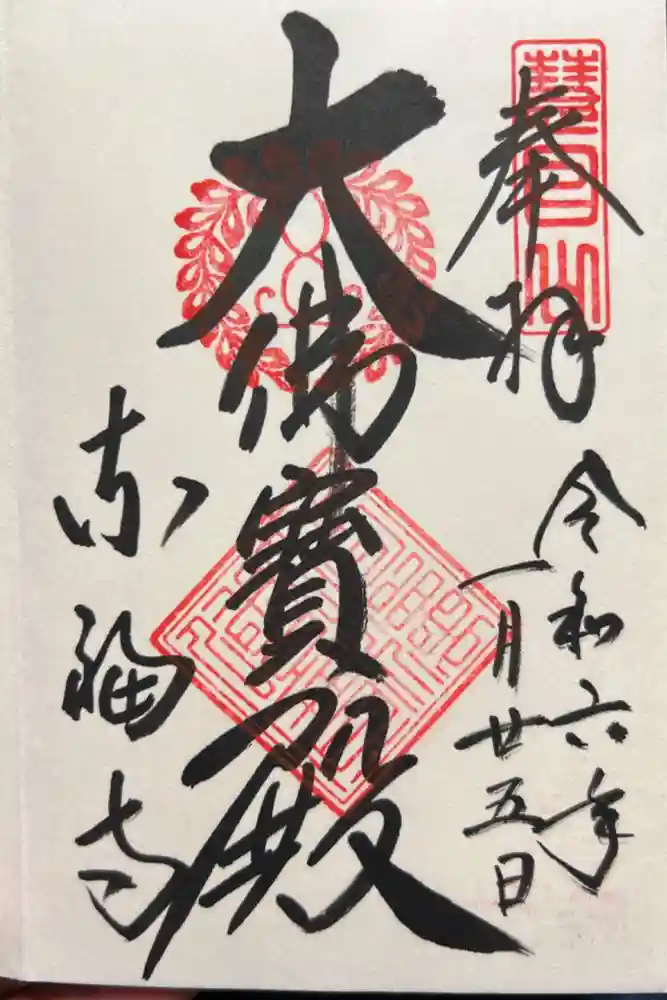 奉拝
慧日山
令和六年
一月廿五日
大佛寳殿
東福寺